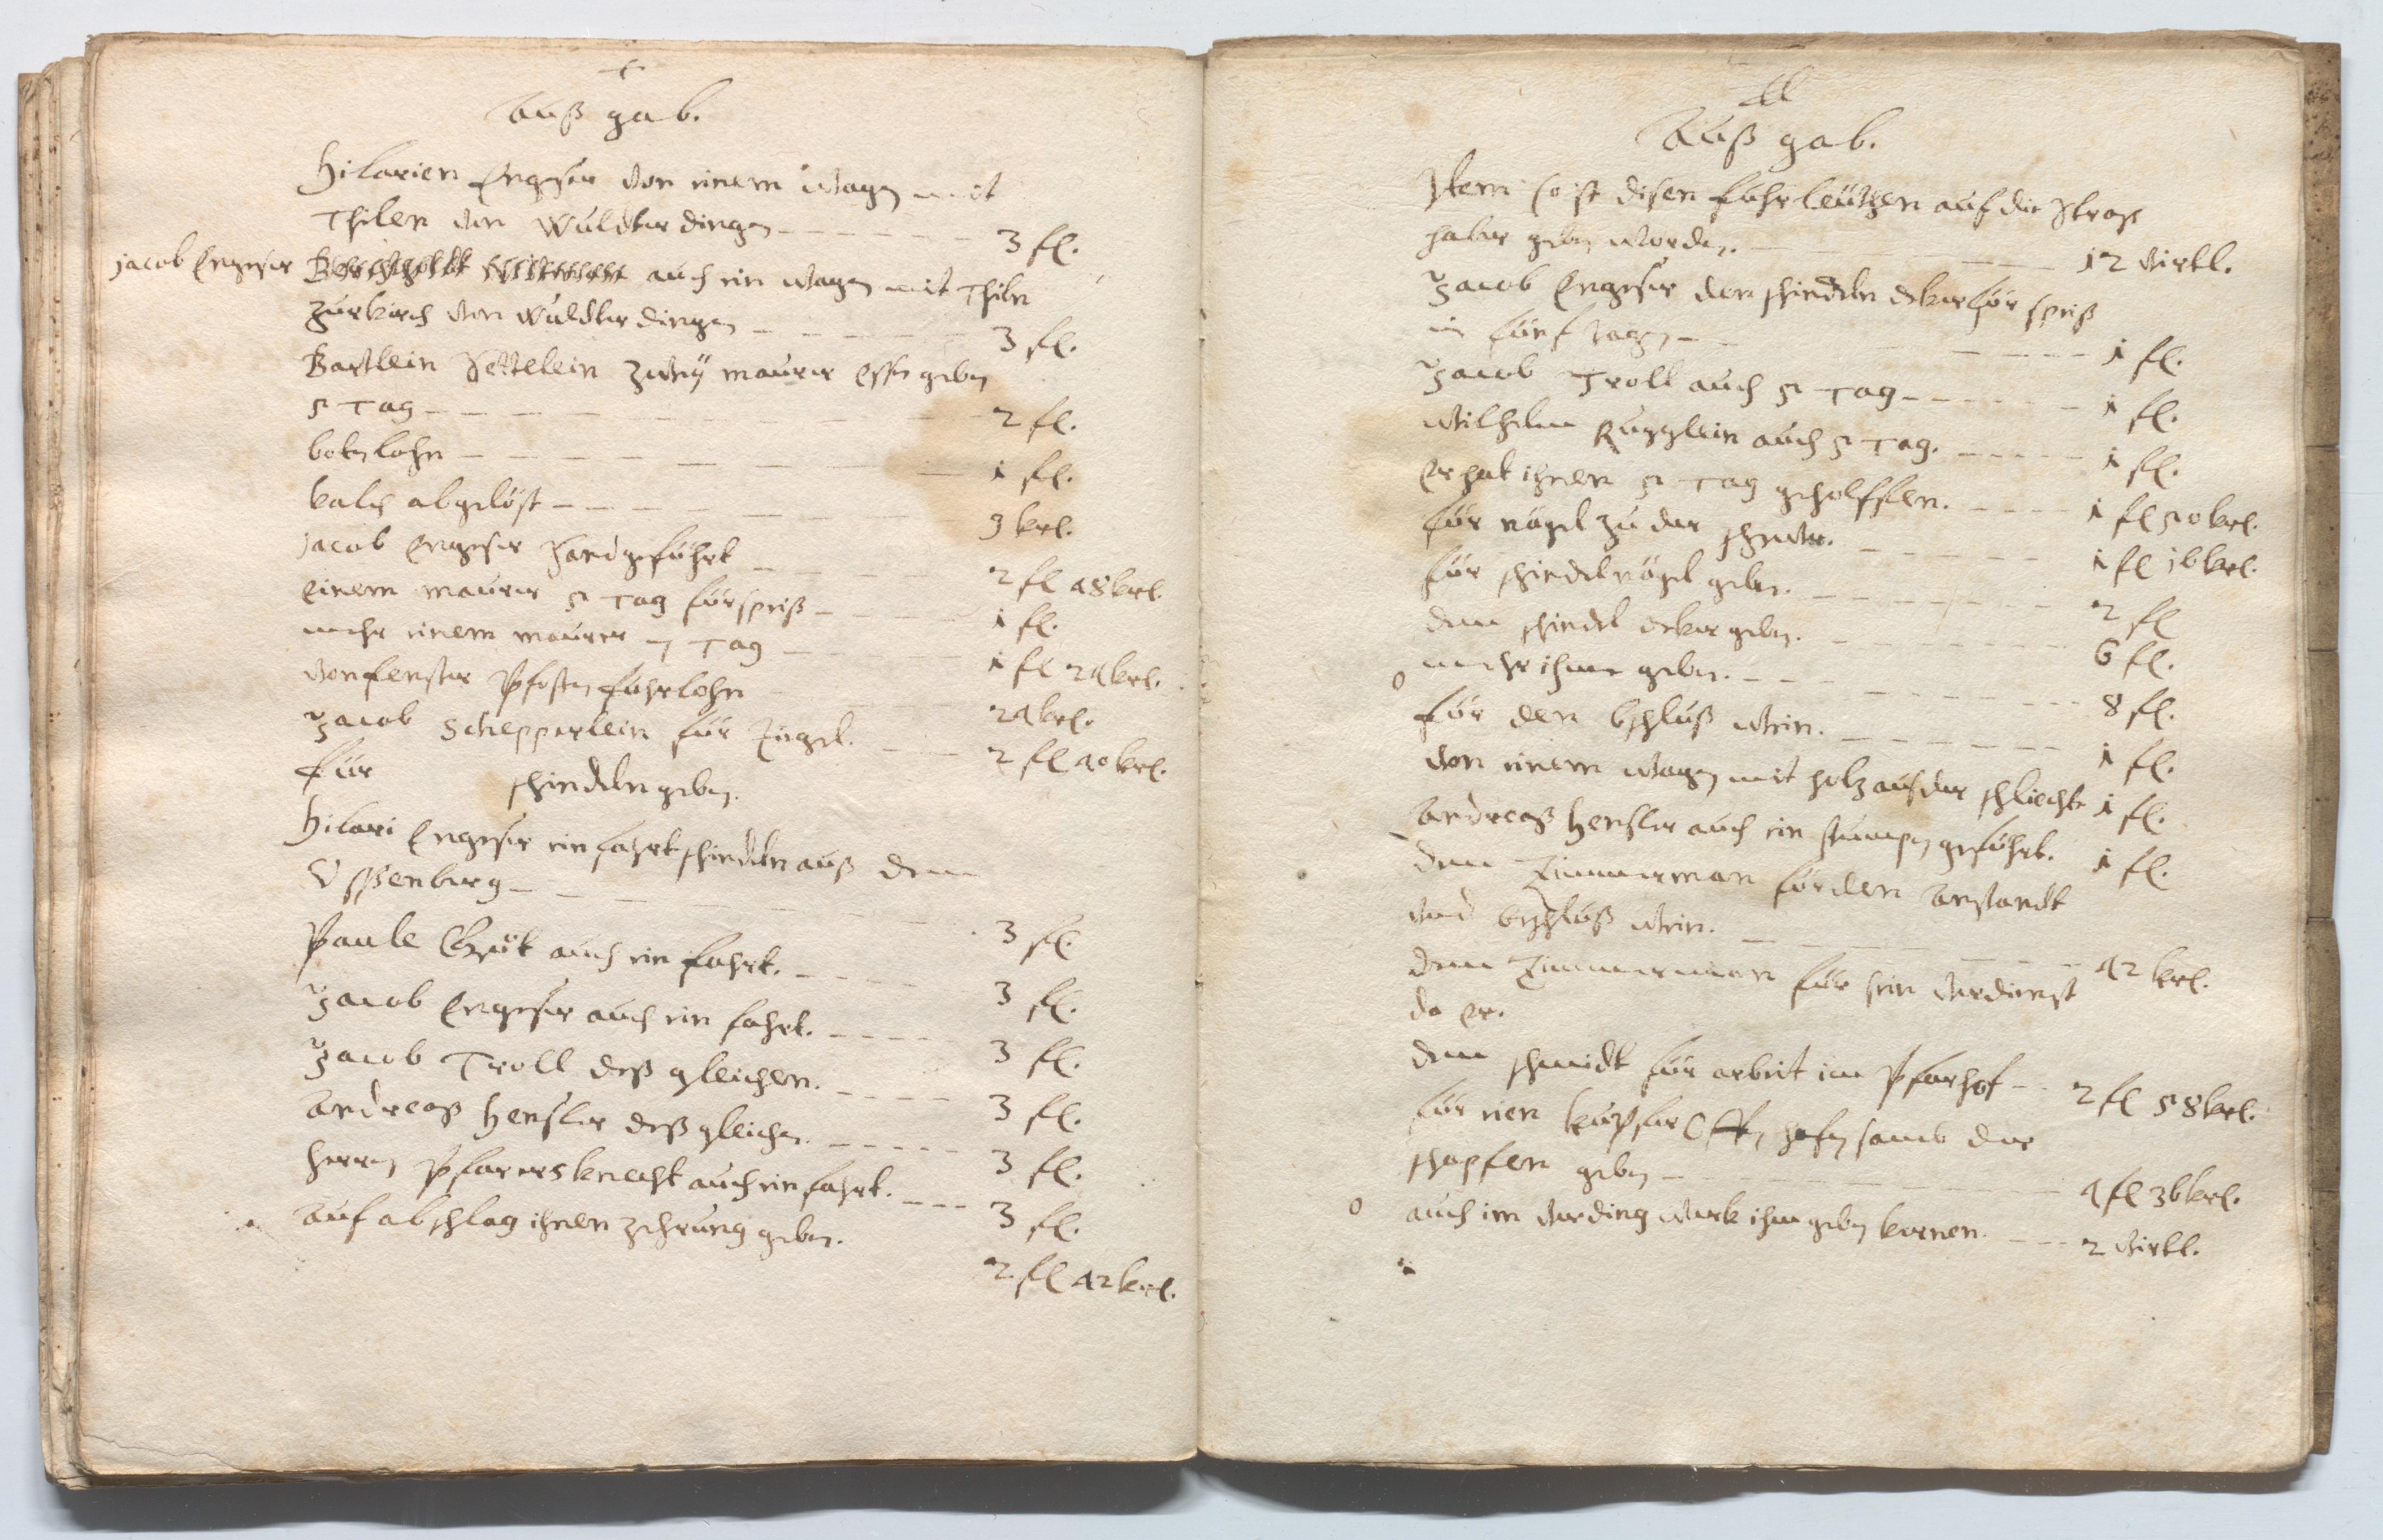 Auß gab.
Hilarien Engeser von einem wagen mit
Thilen von Wuldterdingen 3 fl.
Jacob Engeser auch ein wagen mit Thilen
Zurkirch von Wuldterdingen 3 fl.
Bartlein Settelein zweÿ maurer essen geben
5 Tag 2 fl.
botenlohn 1 fl.
kalch abgelöst 9 krl.
Jacob Engeser Sandgeführt 2 fl 48 krl.
einem maurer 5 Tag für speiß 1 fl.
mehr einem maurer 7 Tag 1 fl 24 krl.
von fenster Pfosten fuhrlohn 24 krl.
Jacob Schepperlein für Ziegel. 2 fl 40 krl.
für schindelen geben.
Hilari Engeser ein fahrt schindelen auß dem
Ussenburg 3 fl.
Paule Grüt auch ein fahrt. 3 fl.
Jacob Engeser auch ein fahrt. 3 fl.
Jacob Troll deß gleichen. 3 fl.
Andreaß Hensler deß gleichen. 3 fl.
Herren Pfarers knecht auch ein fahrt. 3 fl.
Auf abschlag ihnen zehrung geben. 2 fl 42 krl.
Auß gab.
Item so ist disen fuhrleüthen auf die Straß
haber geben worden. 12 viertl.
Jacob Engeser den schindelen deker für speiß
in fünf tagen 1 fl.
Jacob Troll auch 5 Tag 1 fl.
Wilhelm Rugglein auch 5 Tag. 1 fl.
Er hat ihnen 5 Tag geholffen. 1 fl 50 krl.
für nägel zu der scheüer. 1 fl 16 krl.
für schindelnägel geben. 2 fl
dem schindel deker geben. 6 fl.
o mehr ihme geben. 8 fl.
für den bschluß wein. 1 fl.
von einem wagen mit holz auf der schliechte 1 fl.
Andreaß Hensler auch ein stumpen geführt. 1 fl.
dem Zimmerman für den anstandt
und bschluß wein. 42 krl.
dem Zimmerman für sein verdienst
da er.
dem schmidt für arbeit im Pfarhof 2 fl 58 krl.
für ein kupfer Offen hafen samb der
schapfen geben 4 fl 36 krl.
o auch im verding werk ihm geben kernen. 2 viertl.